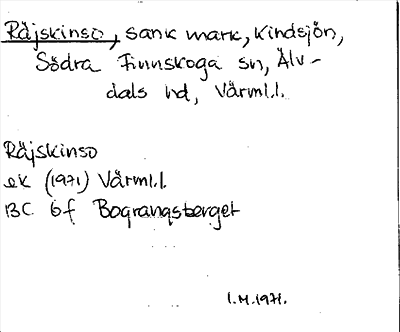 Råjskinso, sank mark, Kindsjön,
Södra Finnskoga sn, Älv-
dals hd, Värml.l.
Råjskinso
ek (1971) Värml.l.
BC 6f Bograngsberget
I.M.1971.